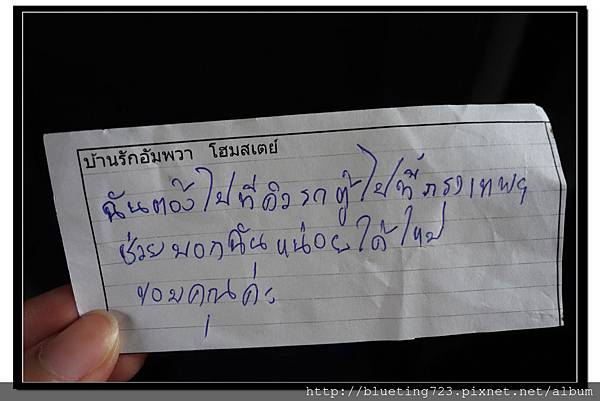 บ้านรักอัมพวา โฮมสเตย์
ฉันต้องไปที่คิวรถตู้ไปที่กรุงเทพฯ
ช่วยบอกฉันหน่อยได้ไหม
ขอบคุณค่ะ
http://blueting723.pixnet.net/album